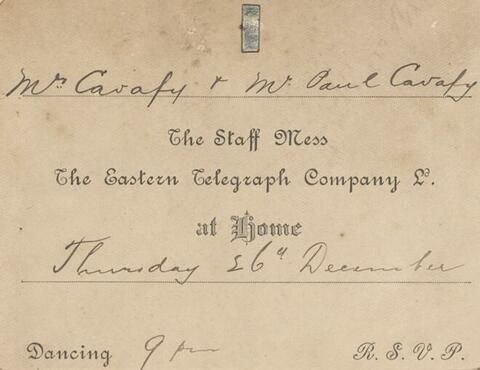 Mrs Cavafy & Mr Paul Cavafy
The Staff Mess
The Eastern Telegraph Company Ld.
at Home
Thursday 26th December
Dancing 9 pm R. S. V. P.